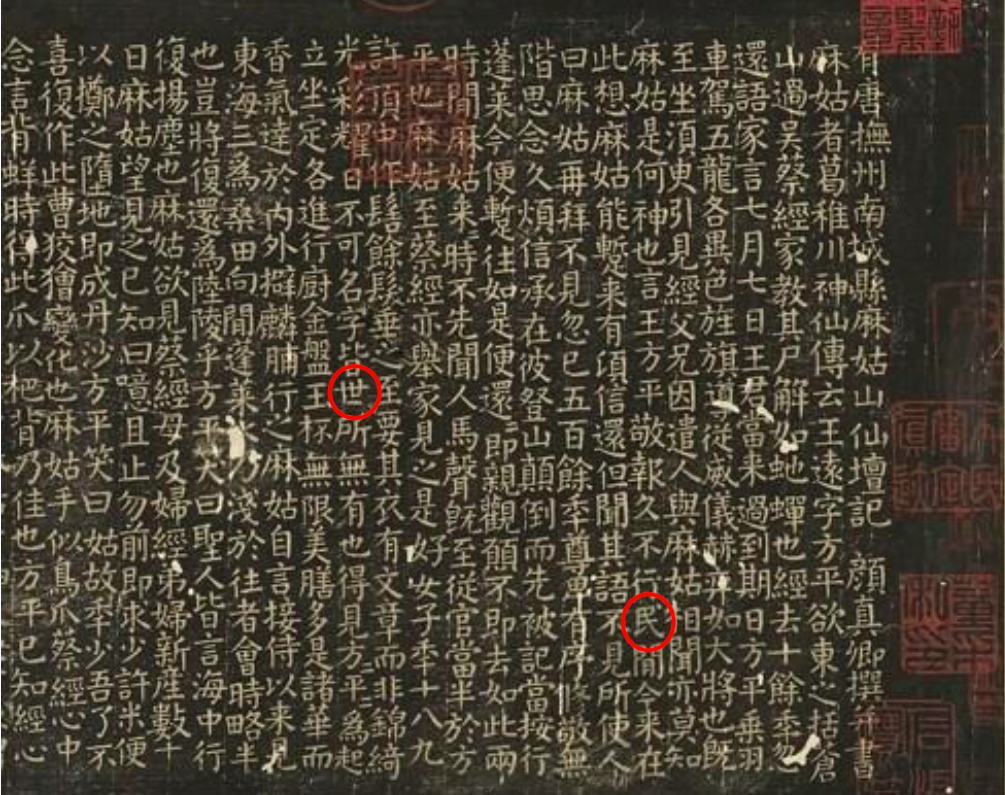 有唐撫州南城縣麻姑山仙壇記 顏真卿撰并書
麻姑者葛稚川神仙傳云王遠字方平欲東之括蒼
山過吳蔡經家教其尸解如虵蟬也經去十餘秊忽
還語家言七月七日王君當来過到期日方平乘羽
車駕五龍各異色旌旗導從威儀赫弈如大將也既
至坐須臾引見經父兄因遣人與麻姑相聞亦莫知
麻姑是何神也言王方平敬報久不行民間今来在
此想麻姑能蹔来有頃信還但聞其語不見所使人
曰麻姑再拜不見忽已五百餘秊尊卑有序修敬無
階思念久煩信承在彼登山顛倒而先被記當按行
蓬萊今便蹔往如是便還即親觀願不即去如此兩
時間麻姑来時不先聞人馬聲既至從官當半於方
平也麻姑至蔡經亦舉家見之是好女子秊十八九
許頂中作髻餘髮垂之至要其衣有文章而非錦綺
光彩耀日不可名字皆世所無有也得見方〻平〻為起
立坐定各進行厨金盤玉杯無限美膳多是諸華而
香氣達於內外擗麟脯行之麻姑自言接待以来見
東海三為桑田向間蓬萊水乃淺於往者會時略半
也豈將復還為陸陵乎方平笑曰聖人皆言海中行
復揚塵也麻姑欲見蔡經母及婦經弟婦新產數十
日麻姑望見之已知曰噫且止勿前即求少許米便
以擲之墮地即成丹沙方平笑曰姑故秊少吾了不
喜復作此曹狡獪變化也麻姑手似鳥爪蔡經心中
念言背蛘時得此爪以杷背乃佳也方平已知經心